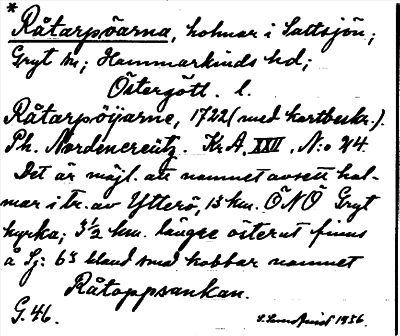 * Råtarpöarna, holmar i Saltsjön;
Gryt sn; Hammarkinds hd;
Östergötl. l.
Råtarpöijarne, 1722 (med kartbeskr.).
Ph. Nordencreütz. Kr.A. XXII. N:o 24.
Det är möjl. att namnet avsett hol-
mar i tr. av Ytterö, 13 km. ÖNÖ Gryt
kyrka; 3½ km. längre österut finns
å Sj: 63 bland små kobbar namnet
Råtoppsankan.
G. 46.
1936.